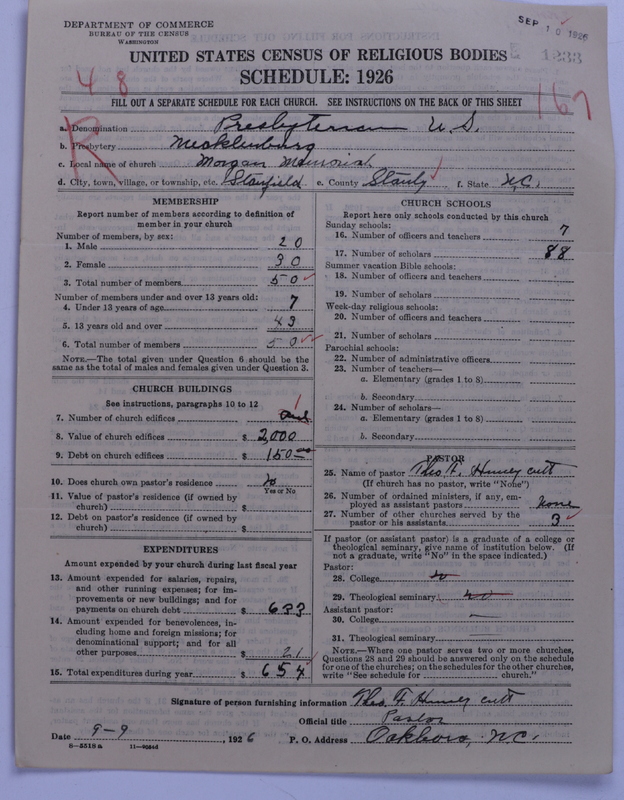 DEPARTMENT OF COMMERCE
BUREAU OF THE CENSUS
WASHINGTON
SEP 10 1926
1233
UNITED STATES CENSUS OF RELIGIOUS BODIES
SCHEDULE: 1926
48
167
R
FILL OUT A SEPARATE SCHEDULE FOR EACH CHURCH. SEE INSTRUCTIONS ON THE BACK OF THIS SHEET
a. Denomination Presbyterian U.S.
b. Presbytery Mecklenburg
c. Local name of church Morgan Memorial
d. City, town, village, or township, etc. Stanfield e. County Stanly f. State N.C.
MEMBERSHIP
Report number of members according to definition of
member in your church
Number of members, by sex:
1. Male 20
2. Female 30
3. Total number of members 50
Number of members under and over 13 years old:
4. Under 13 years of age 7
5. 13 years old and over 43
6. Total number of members 50
NOTE.—The total given under Question 6 should be the
same as the total of males and females given under Question 3.
CHURCH BUILDINGS
See instructions, paragraphs 10 to 12
7. Number of church edifices 1
8. Value of church edifices $ 2,000
9. Debt on church edifices $ 150.00
10. Does church own pastor's residence No
Yes or No
11. Value of pastor's residence (if owned by
church) $
12. Debt on pastor's residence (if owned by
church) $
EXPENDITURES
Amount expended by your church during last fiscal year
13. Amount expended for salaries, repairs,
and other running expenses; for im-
provements or new buildings; and for
payments on church debt $ 633
14. Amount expended for benevolences, in-
cluding home and foreign missions; for
denominational support; and for all
other purposes $ 21
15. Total expenditures during year $ 654
CHURCH SCHOOLS
Report here only schools conducted by this church
Sunday schools:
16. Number of officers and teachers 7
17. Number of scholars 88
Summer vacation Bible schools:
18. Number of officers and teachers
19. Number of scholars
Week-day religious schools:
20. Number of officers and teachers
21. Number of scholars
Parochial schools:
22. Number of administrative officers
23. Number of teachers—
a. Elementary (grades 1 to 8)
b. Secondary
24. Number of scholars—
a. Elementary (grades 1 to 8)
b. Secondary
PASTOR
25. Name of pastor Theo. F. Huneycutt
(If church has no pastor, write "None")
26. Number of ordained ministers, if any, em-
ployed as assistant pastors None
27. Number of other churches served by the
pastor or his assistants 3
If pastor (or assistant pastor) is a graduate of a college or
theological seminary, give name of institution below. (If
not a graduate, write "No" in the space indicated.)
Pastor:
28. College No
29. Theological seminary No
Assistant pastor:
30. College —
31. Theological seminary —
NOTE.—Where one pastor serves two or more churches,
Questions 28 and 29 should be answered only on the schedule
for one of the churches; on the schedules for the other churches,
write "See schedule for church."
Signature of person furnishing information Theo. F. Huneycutt
Official title Pastor
Date 9-9, 1926 P. O. Address Oakboro, N.C.
8—5518a